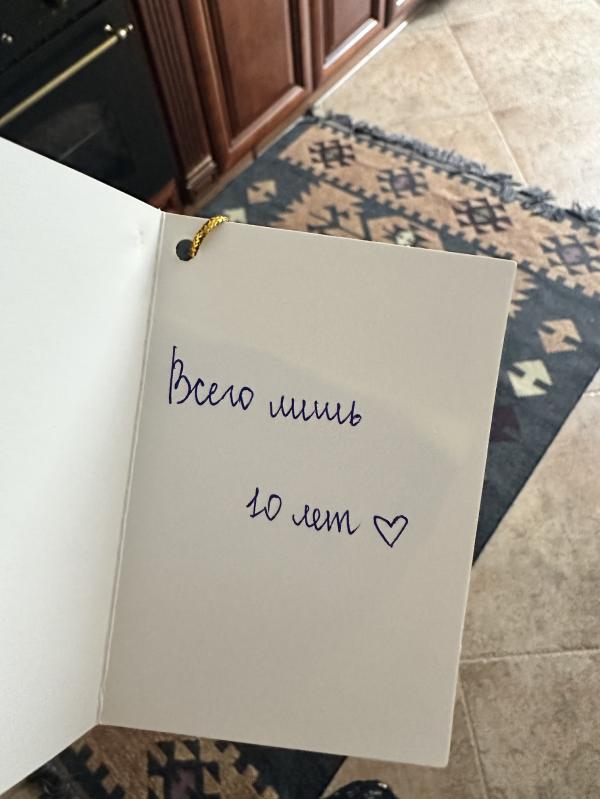 Всего лишь
10 лет ♡